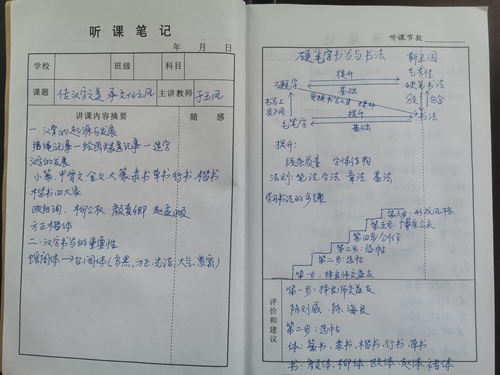 听课笔记
年 月 日
学校 班级 科目
课题 传汉字之美 承文化之风 主讲教师 于玉凤
讲课内容摘要 随感
一.汉字的起源与发展
结绳记事—绘画记事—造字
汉字的发展
小篆 甲骨文 金文 大篆 隶书 草书 行书 楷书
楷书四大家
欧阳询、柳公权 颜真卿 赵孟頫
方正楷体
二.汉字书写的重要性
馆阁体→台阁体(乌黑、方正、光洁、大气、
听课节数
硬笔字书写与书法
提升
艺术性
硬笔字 硬笔书法
基础
书写工具不同
提升
包含
毛笔字 书法
基础
提升:
线条质量 字体结构
法则:笔法、字法、章法、墨法
学习书法的步骤
第六步:形成风格
第五步:博采众长
第四步:创作
第三步:临帖
第二步:选帖
第一步:择良师交益友
评价和建议
第一步:择良师交益友
陈则威、陈海良
第二步:选帖
体:篆书、隶书、楷书、行书 草书
书:颜体、柳体、欧体、赵体、褚体